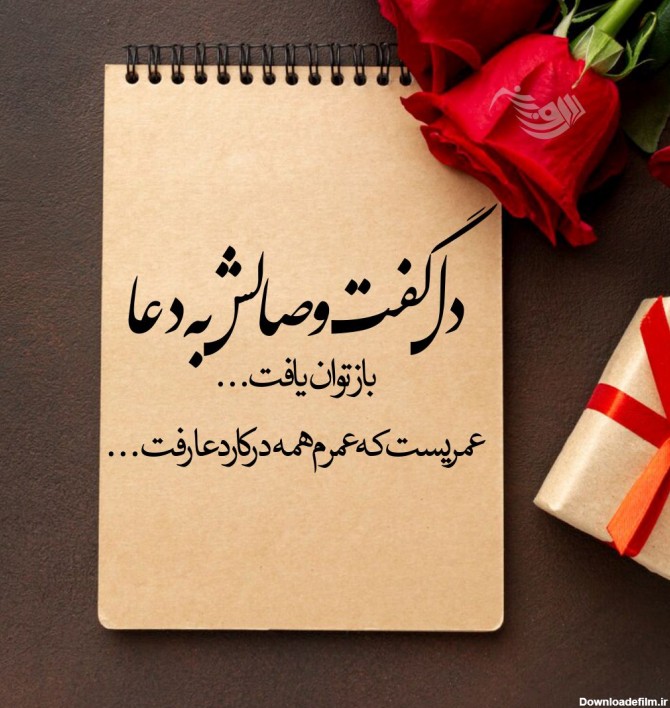 دل گفت وصالش به دعا
باز توان یافت...
عمریست که عمرم همه در کار دعا رفت...
Downloadefilm.ir